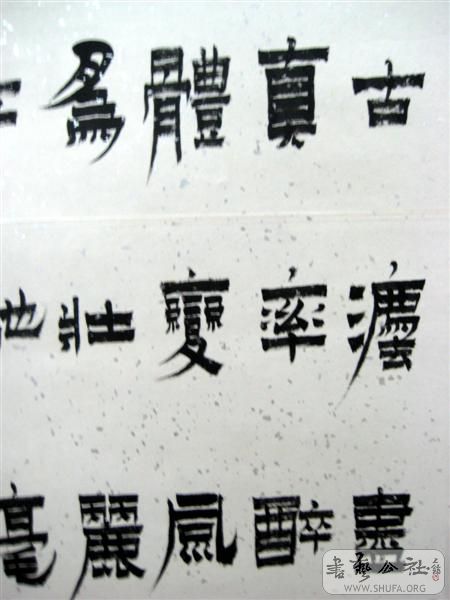 古灋
真率醉
體變風
為壯麗
毫
書藝公社
WWW.SHUFA.ORG